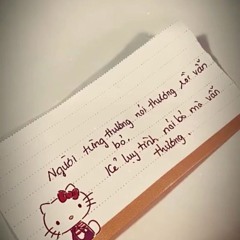 Người từng thương nói thương rồi vẫn
bỏ.
Kẻ luỵ tình nói bỏ mà vẫn
thương.